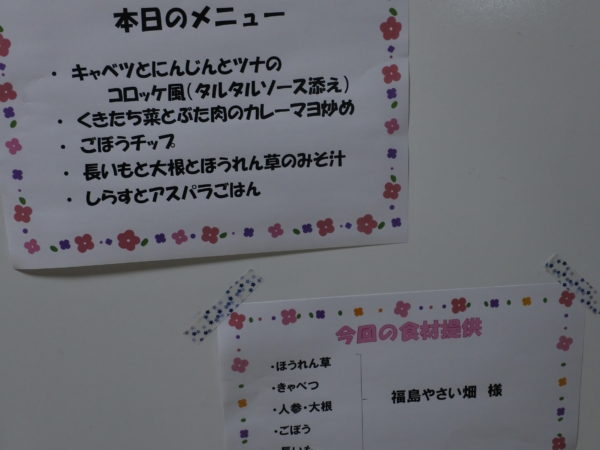 本日のメニュー
・ キャベツとにんじんとツナの
コロッケ風(タルタルソース添え)
・ くきたち菜とぶた肉のカレーマヨ炒め
・ ごぼうチップ
・ 長いもと大根とほうれん草のみそ汁
・ しらすとアスパラごはん
今回の食材提供
・ほうれん草
・きゃべつ
・人参・大根
・ごぼう
・長いも
福島やさい畑 様